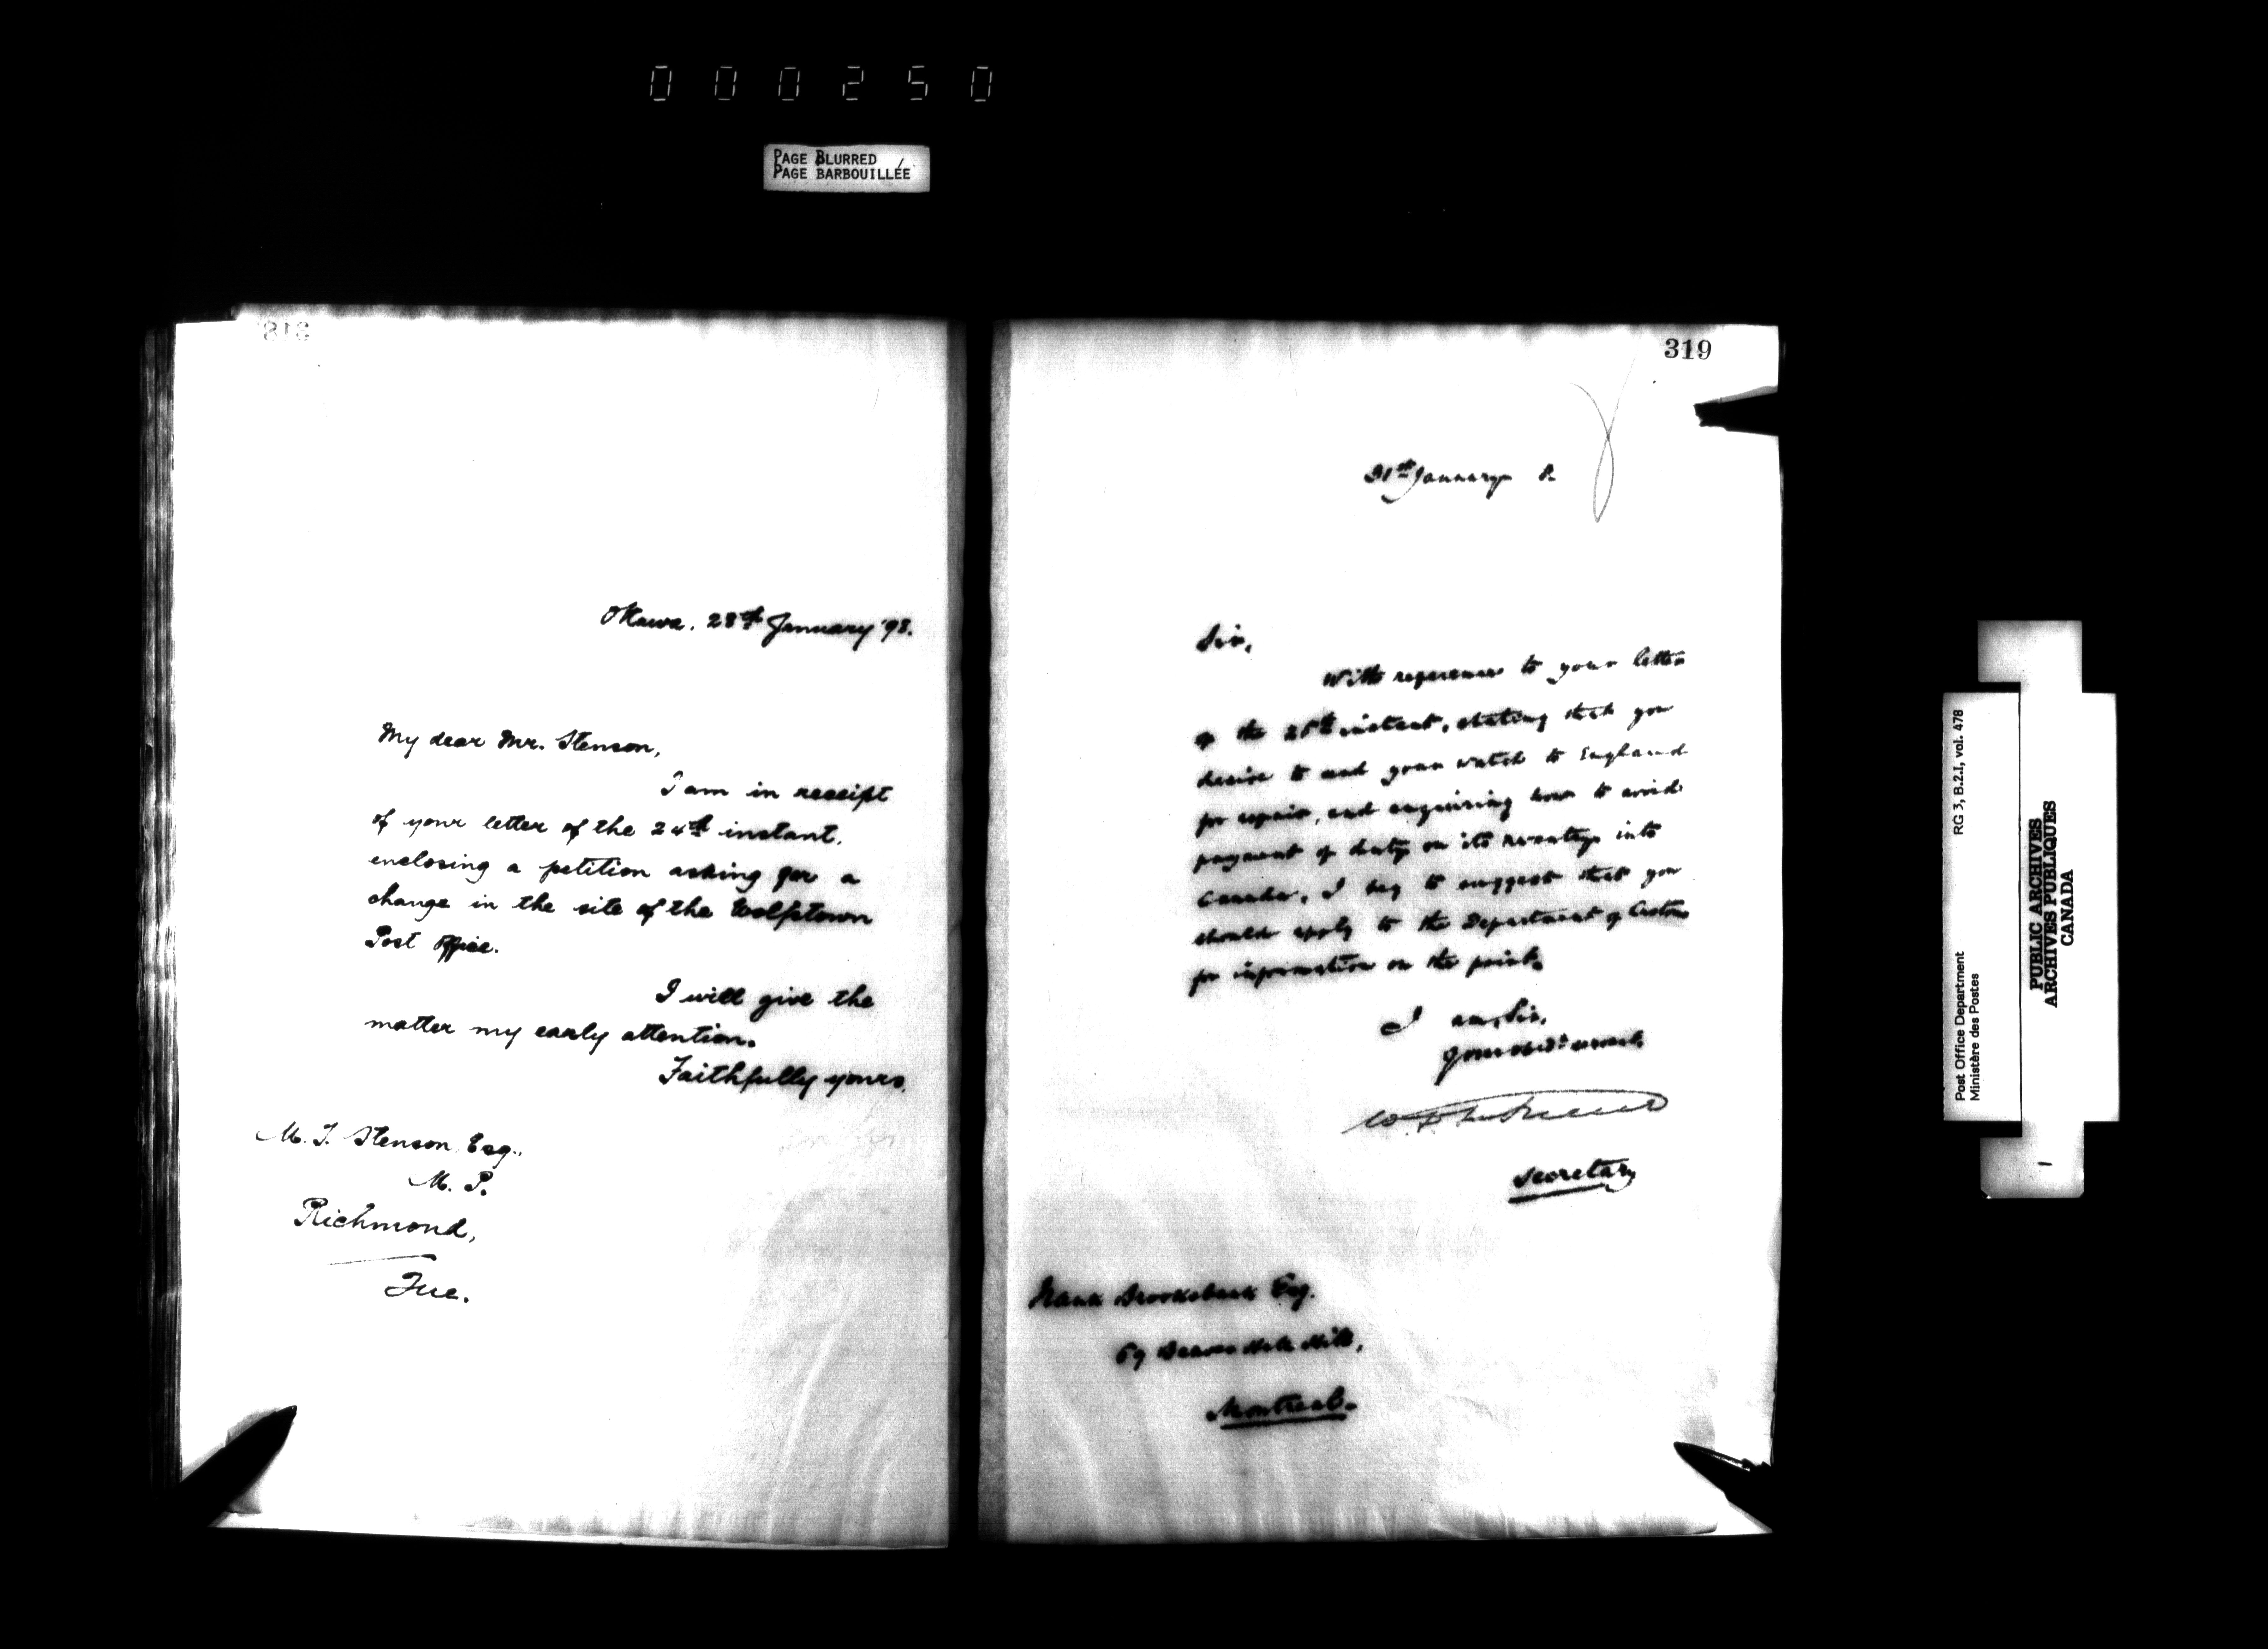 000250
PAGE BLURRED
PAGE BARBOUILLÉE
318
Ottawa. 28th January '98.
My dear Mr. Stenson,
I am in receipt
of your letter of the 24th instant,
enclosing a petition asking for a
change in the site of the Wolfstown
Post Office.
I will give the
matter my early attention.
Faithfully yours,
M. T. Stenson, Esq.,
M. P.
Richmond,
Que.
319
31st January 8.
Sir,
With reference to your letter
of the 25th instant, stating that you
desire to send your watch to England
for repair, and enquiring how to avoid
payment of duty on its re-entry into
Canada, I beg to suggest that you
should apply to the Department of Customs
for information on the point.
I am, Sir,
Your obedt servant,
Secretary
Frank Brooksbank Esq.
69 Beaver Hall Hill,
Montreal.
Post Office Department
Ministère des Postes
RG 3, B.2.I, vol. 478
PUBLIC ARCHIVES
ARCHIVES PUBLIQUES
CANADA